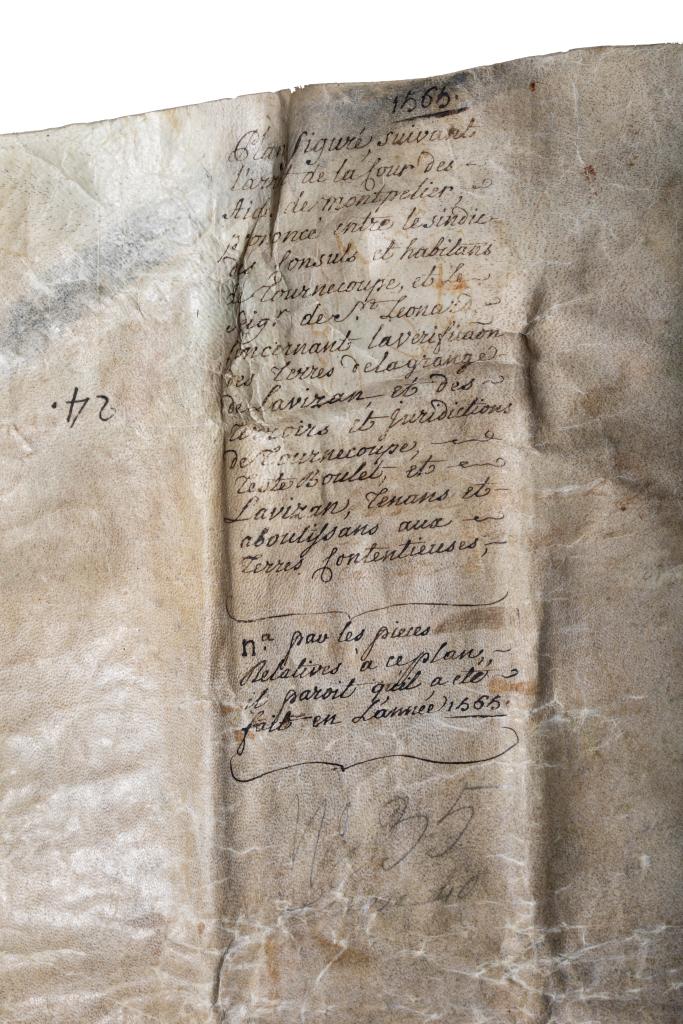 1565.
Plan figuré, suivant
l'arrt de la Cour des
Aids de montpelier,
prononcé entre le sindic
des Consuls et habitans
de Tournecoupe, et Le
Seigr de St. Leonard.
Concernant la verification
des Terres de la grange
de Lavizan, et des
terroirs et juridictions
de Tournecoupe,
Teste Boulet, et
Lavizan, Tenans et
aboutissans aux
Terres Contentieuses,
na par les pieces
Relatives à ce plan,
il paroit qu'il a eté
fait en L'année 1565.
24.
No. 35
40